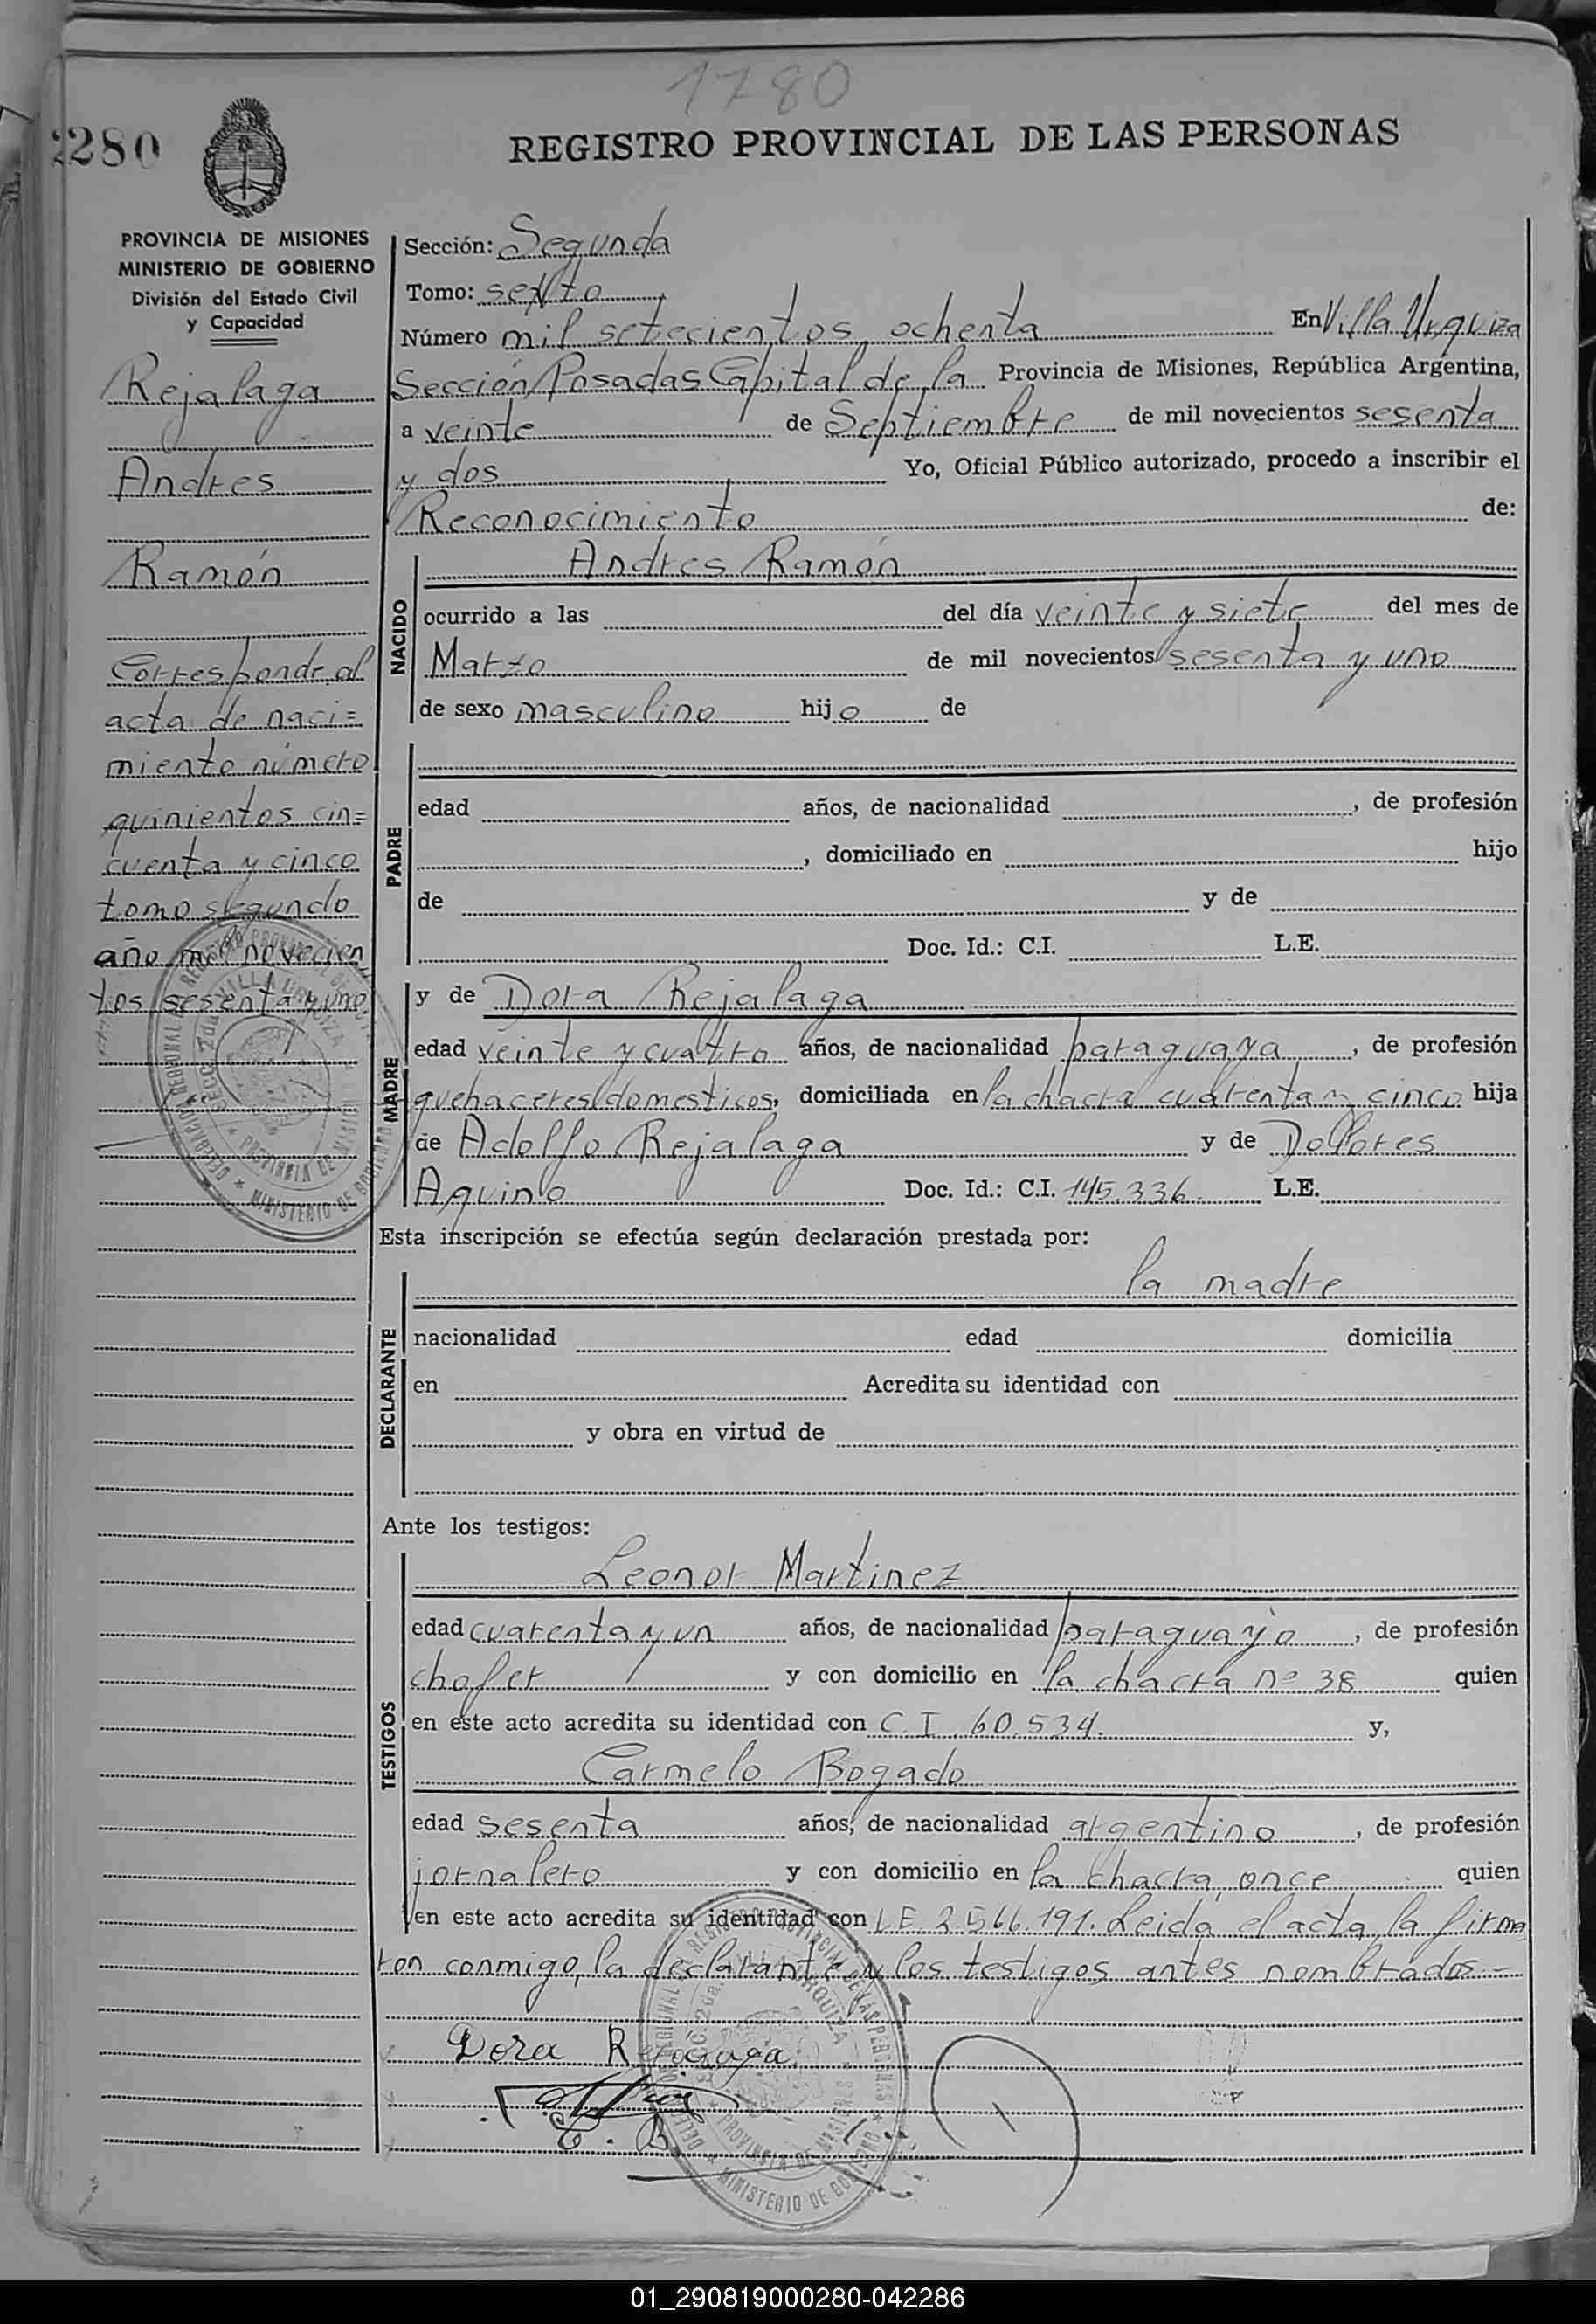 1780
2280
REGISTRO PROVINCIAL DE LAS PERSONAS
PROVINCIA DE MISIONES
MINISTERIO DE GOBIERNO
División del Estado Civil
y Capacidad
Rejalaga
Andres
Ramón
Corresponde al
acta de naci=
miento número
quinientos cin=
cuenta y cinco
tomo segundo
año mil novecien
tos sesenta y uno
Sección: Segunda
Tomo: sexto
Número mil setecientos ochenta En Villa Urquiza
Sección Posadas Capital de la Provincia de Misiones, República Argentina,
a veinte de Septiembre de mil novecientos sesenta
y dos Yo, Oficial Público autorizado, procedo a inscribir el
Reconocimiento de:
NACIDO
Andres Ramón
ocurrido a las del día veinte y siete del mes de
Marzo de mil novecientos sesenta y uno
de sexo masculino hijo de
PADRE
edad años, de nacionalidad , de profesión
, domiciliado en hijo
de y de
Doc. Id.: C.I. L.E.
MADRE
y de Dora Rejalaga
edad veinte y cuatro años, de nacionalidad paraguaya, de profesión
quehaceres domesticos, domiciliada en la chacra cuarenta y cinco hija
de Adolfo Rejalaga y de Dolores
Aquino Doc. Id.: C.I. 145.336. L.E.
Esta inscripción se efectúa según declaración prestada por:
DECLARANTE
la madre
nacionalidad edad domicilia
en Acredita su identidad con
y obra en virtud de
Ante los testigos:
TESTIGOS
Leonor Martinez
edad cuarenta y un años, de nacionalidad paraguayo, de profesión
chofer y con domicilio en la chacra nº 38 quien
en este acto acredita su identidad con C.I. 60.534. y,
Carmelo Bogado
edad sesenta años, de nacionalidad argentino, de profesión
jornalero y con domicilio en la chacra once quien
en este acto acredita su identidad con L.E. 2.566.191. Leida el acta, la firma
ron conmigo, la declarante y los testigos antes nombrados.-
Dora Rejalaga
C. B.
01_290819000280-042286